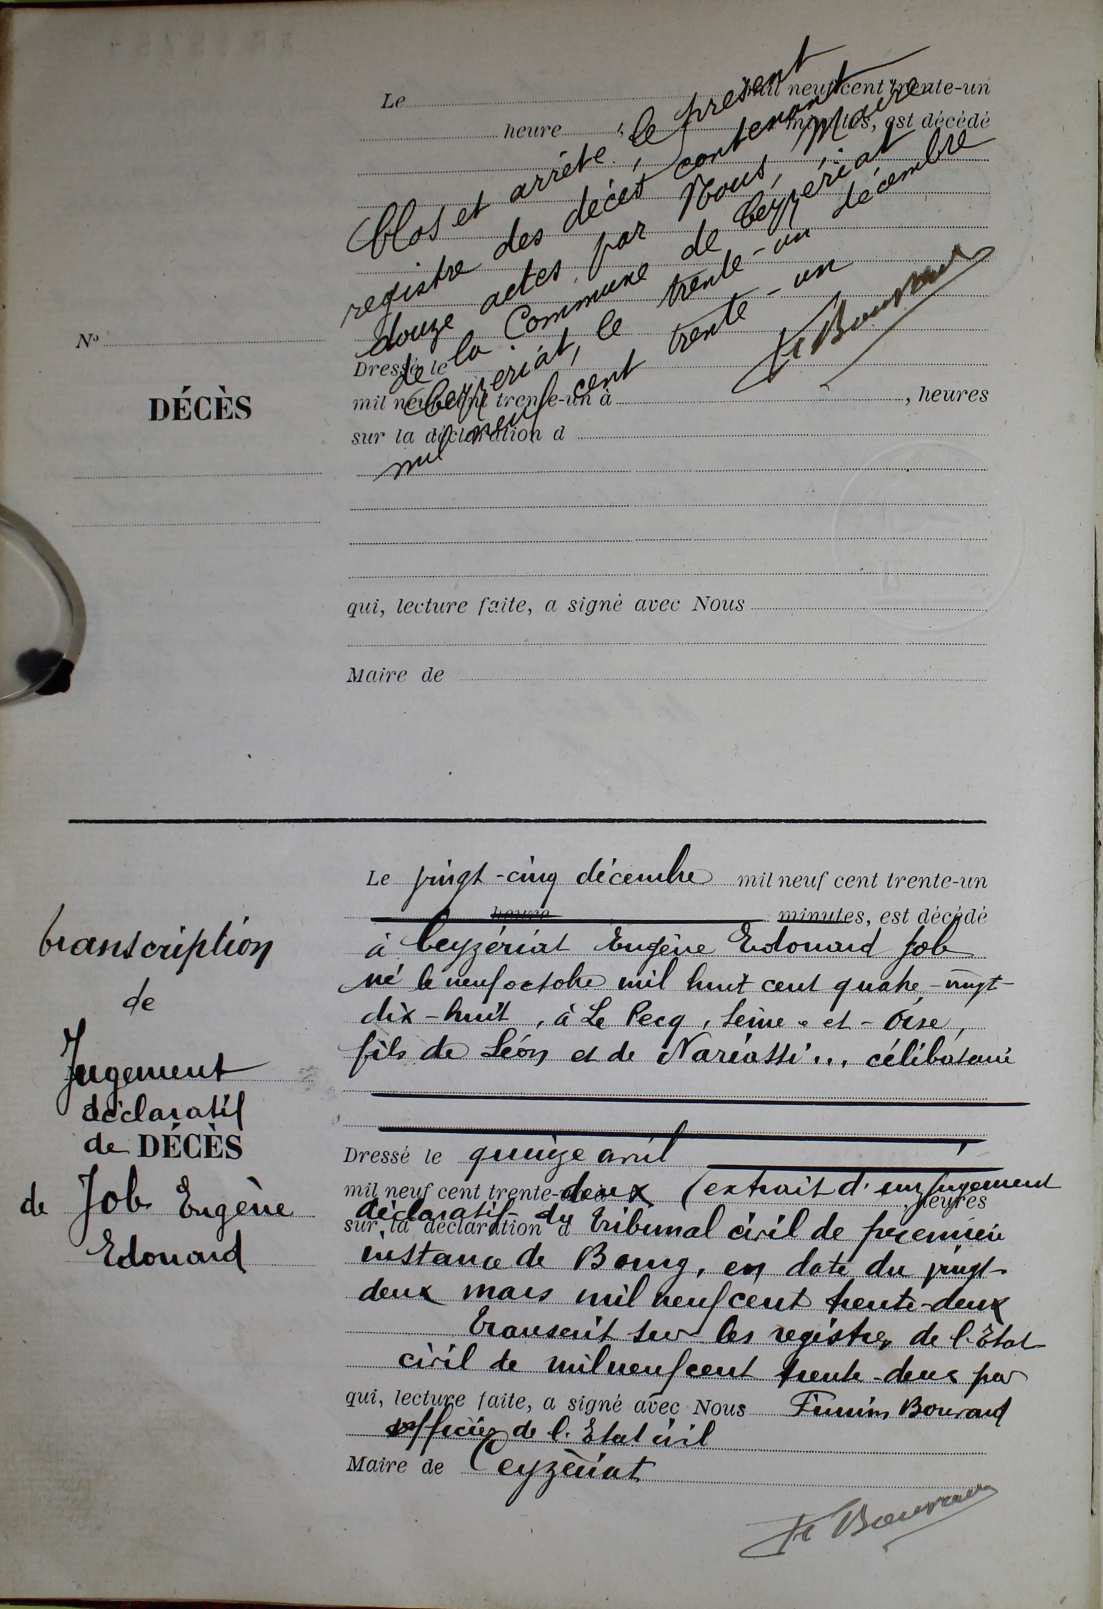 Le mil neuf cent trente-un
heure minutes, est décédé
Clos et arrêté, le présent
registre des décès contenant
douze actes par Nous, Maire
de la Commune de Ceyzériat
Ceyzériat, le trente-un décembre
mil neuf cent trente-un
Fr Bouvard
N°
DÉCÈS
Dressé le
mil neuf cent trente-un à , heures
sur la déclaration d
qui, lecture faite, a signé avec Nous
Maire de
transcription
de
Jugement
déclaratif
de DÉCÈS
de Job Eugène
Edouard
Le vingt-cinq décembre mil neuf cent trente-un
heure minutes, est décédé
à Ceyzériat Eugène Edouard Job
né le neuf octobre mil huit cent quatre-vingt-
dix-huit, à Le Pecq, Seine-et-Oise,
fils de Léon et de Nariassi... célibataire
Dressé le quinze avril
mil neuf cent trente-deux (extrait d'un jugement
heures
déclaratif du tribunal civil de première
sur la déclaration d
instance de Bourg, en date du vingt-
deux mars mil neuf cent trente-deux
Transcrit sur les registres de l'Etat
civil de mil neuf cent trente-deux par
qui, lecture faite, a signé avec Nous Firmin Bouvard
officier de l'Etat civil
Maire de Ceyzériat
Fr Bouvard